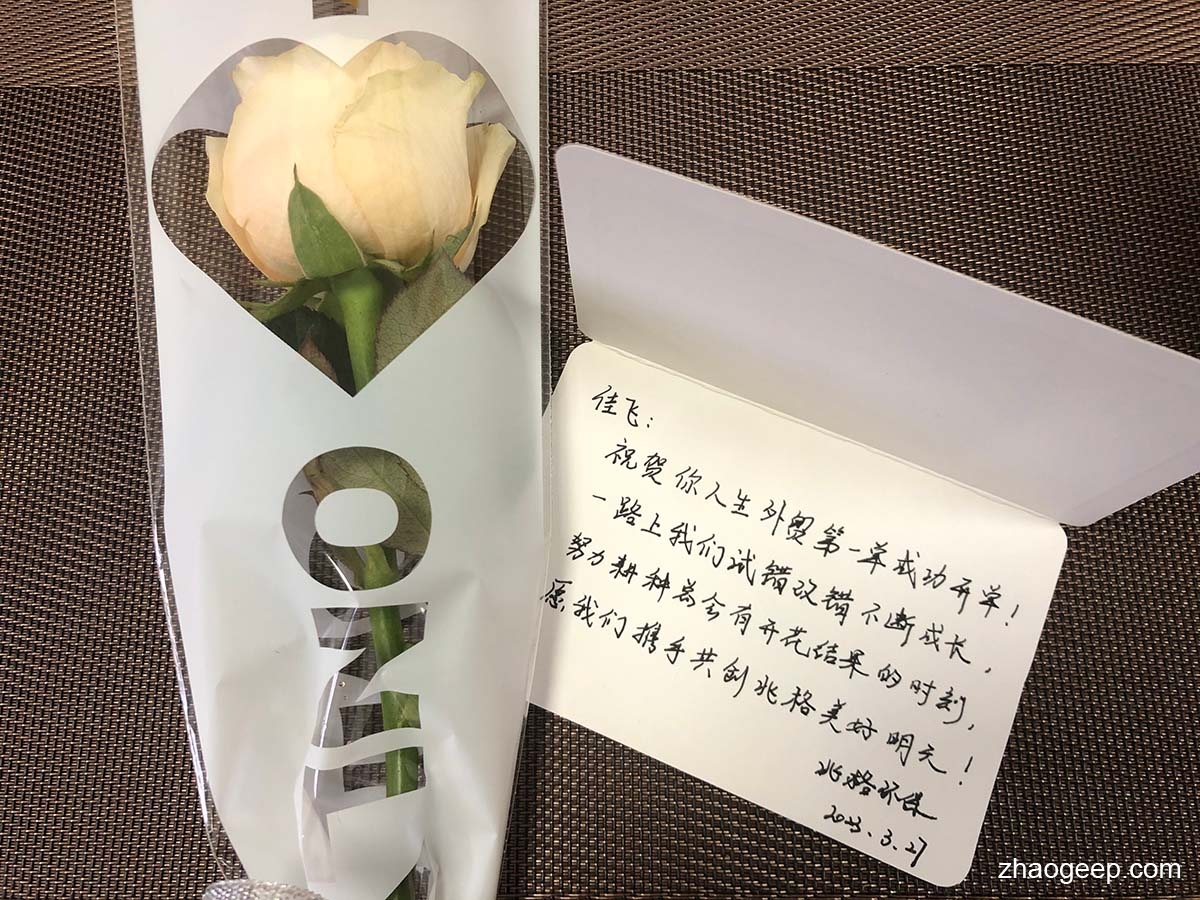 ONLY
佳飞：
祝贺你人生外贸第一单成功开单！
一路上我们试错改错不断成长，
努力耕种总会有开花结果的时刻，
愿我们携手共创兆格美好明天！
兆格环保
2023.3.27
zhaogeep.com